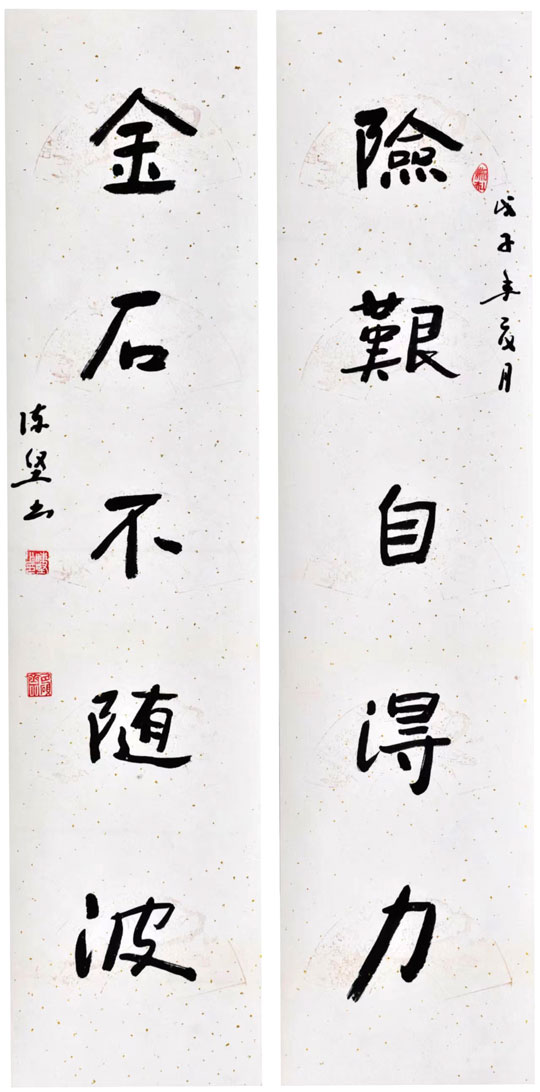 險艱自得力
戊子年夏月
金石不随波
陈坚书